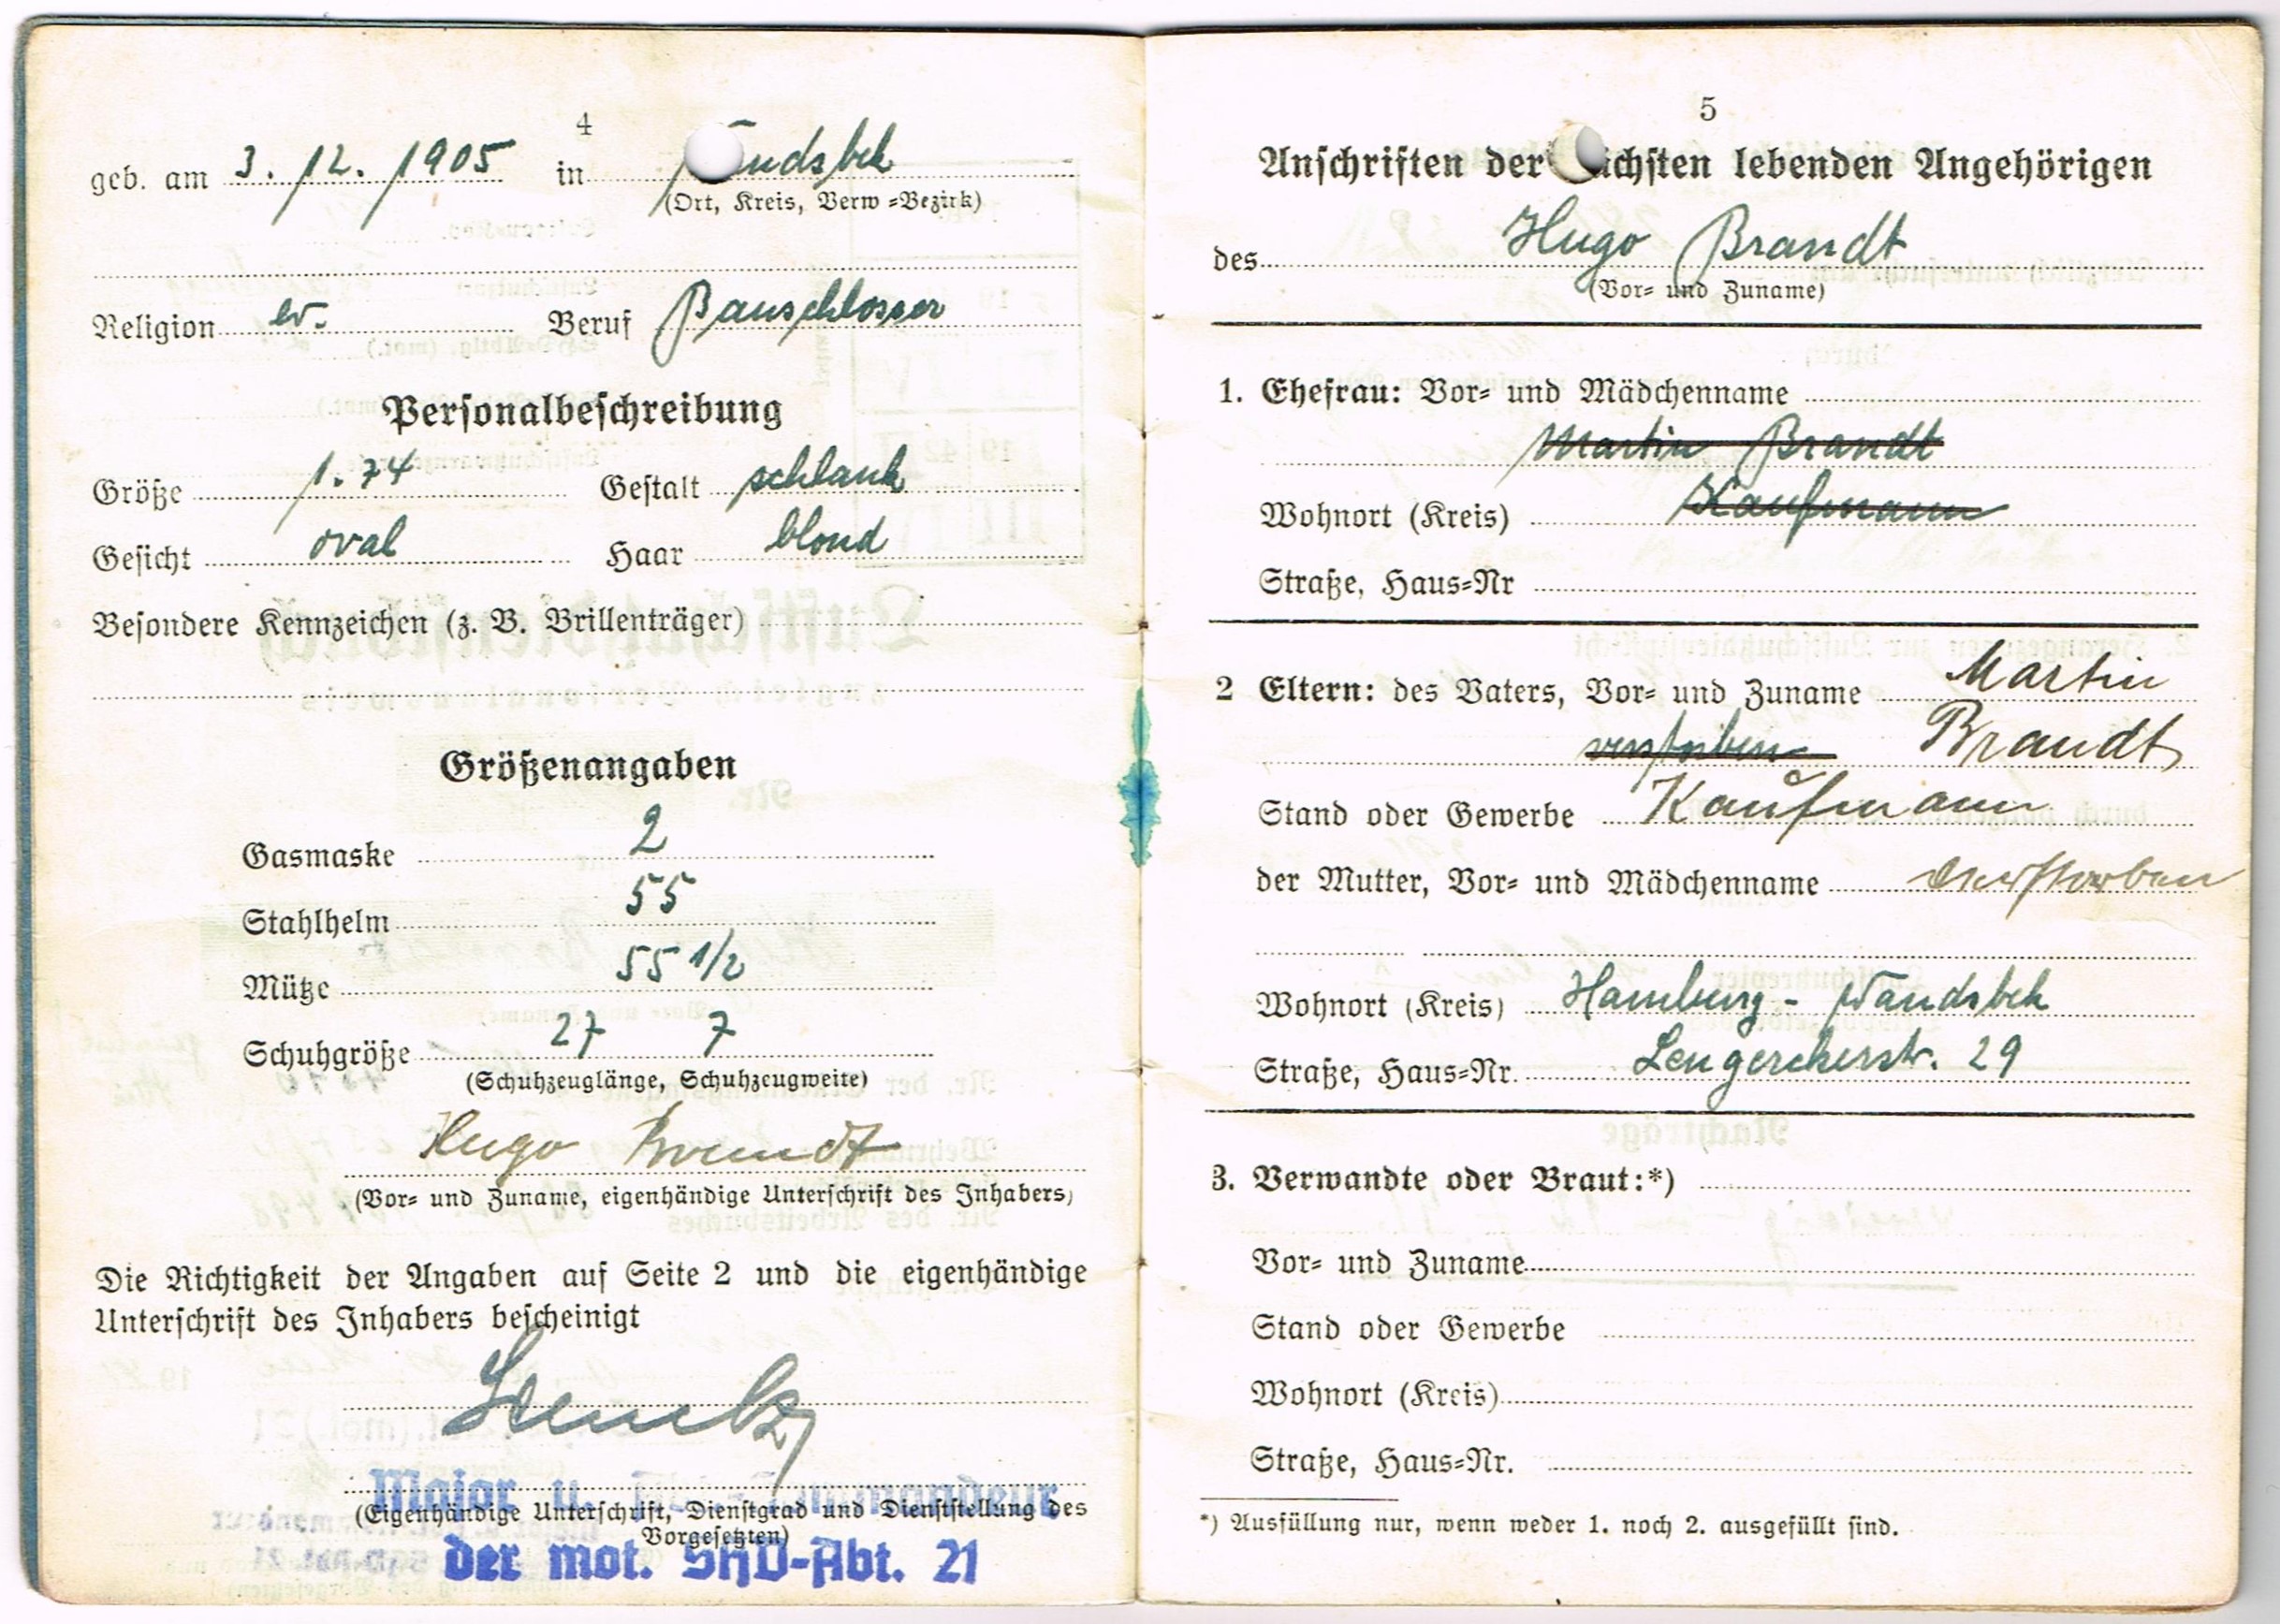 4
geb. am 3. 12. 1905 in Wandsbek
(Ort, Kreis, Verw =Bezirk)
Religion ev. Beruf Bauschlosser
Personalbeschreibung
Größe 1.74 Gestalt schlank
Gesicht oval Haar blond
Besondere Kennzeichen (z. B. Brillenträger)
Größenangaben
Gasmaske 2
Stahlhelm 55
Mütze 55 1/2
Schuhgröße 27 7
(Schuhzeuglänge, Schuhzeugweite)
Hugo Brandt
(Vor= und Zuname, eigenhändige Unterschrift des Inhabers)
Die Richtigkeit der Angaben auf Seite 2 und die eigenhändige
Unterschrift des Inhabers bescheinigt
Major u.
(Eigenhändige Unterschrift, Dienstgrad und Dienststellung des
Vorgesetzten)
der mot. SHD-Abt. 21
5
Anschriften der nächsten lebenden Angehörigen
des Hugo Brandt
(Vor= und Zuname)
1. Ehefrau: Vor= und Mädchenname
Martin Brandt
Wohnort (Kreis) Kaufmann
Straße, Haus=Nr
2 Eltern: des Vaters, Vor= und Zuname Martin
verstorben Brandt
Stand oder Gewerbe Kaufmann
der Mutter, Vor= und Mädchenname verstorben
Wohnort (Kreis) Hamburg - Wandsbek
Straße, Haus=Nr. Lengerckestr. 29
3. Verwandte oder Braut:*)
Vor= und Zuname
Stand oder Gewerbe
Wohnort (Kreis)
Straße, Haus=Nr.
*) Ausfüllung nur, wenn weder 1. noch 2. ausgefüllt sind.